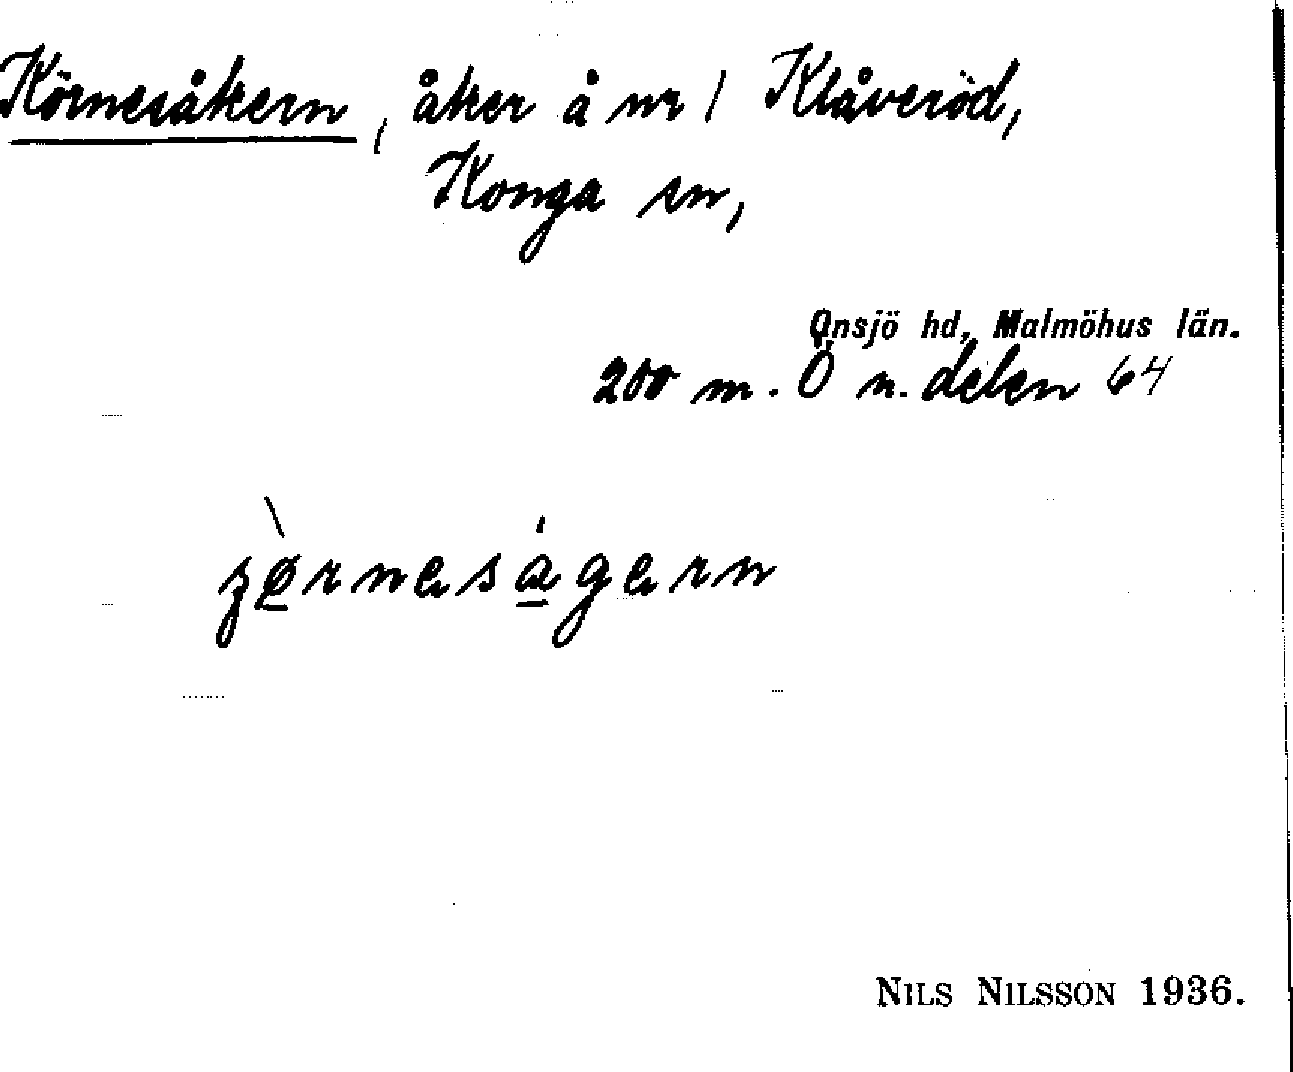 Körnesåkern, åker å nr 1 Klåveröd,
Konga sn,
Onsjö hd, Malmöhus län.
200 m. Ö n. delen 64
zø̀rneságern
NILS NILSSON 1936.